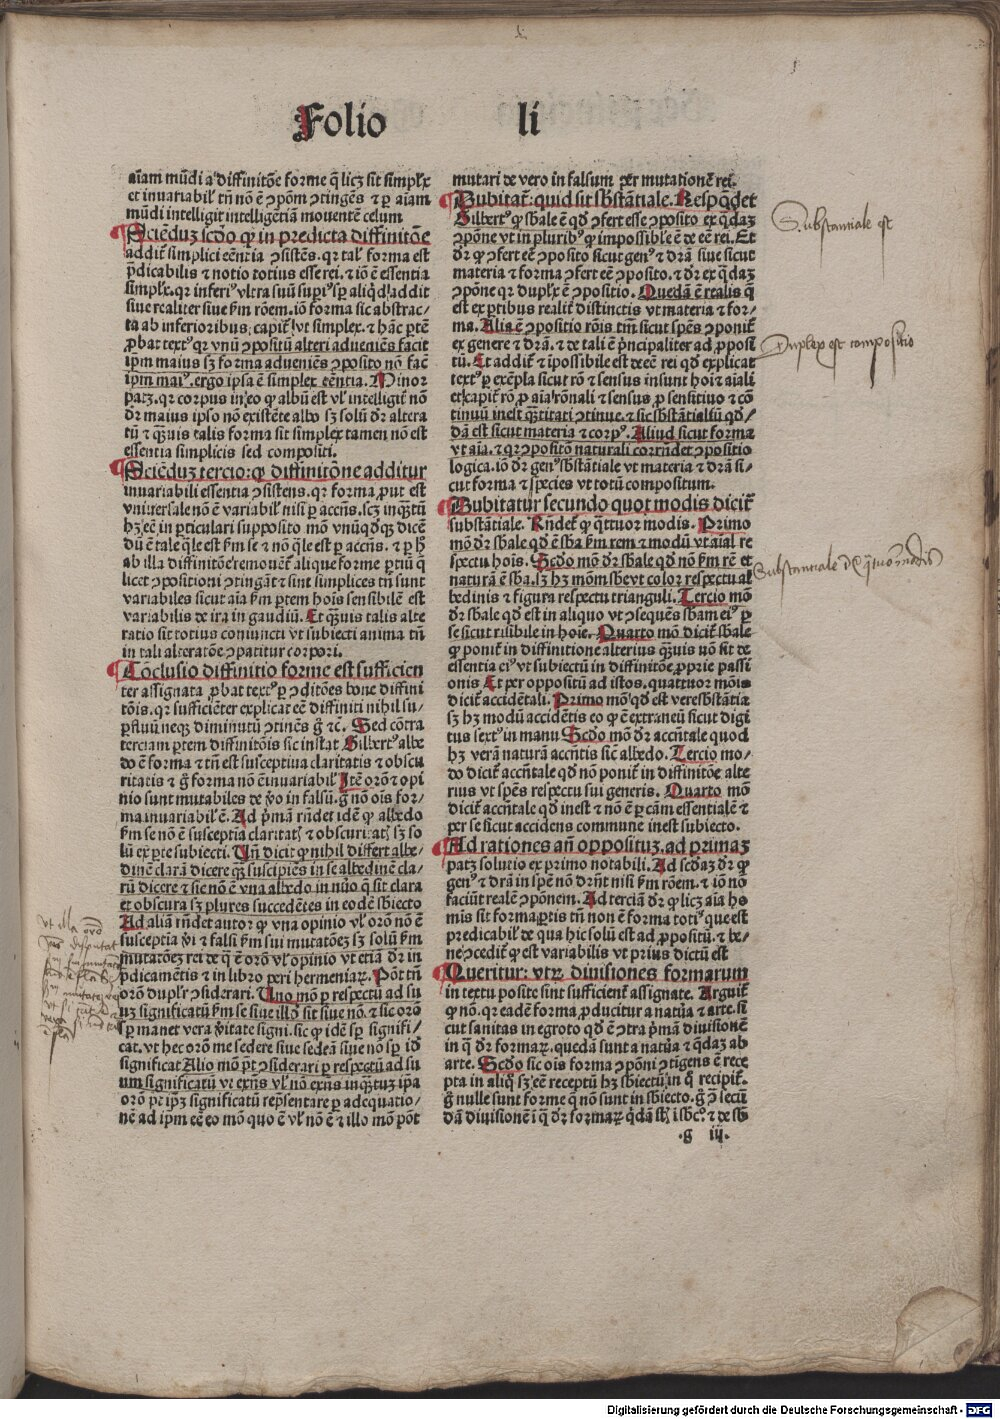 Folio li
aīam mūdi a diffinitōe forme q̄ licꝫ sit simplˀx
et inuariabilˀ tn̄ nō ē ꝯpōm ꝯtingēs ⁊ ꝑ aīam
mūdi intelligit intelligētiā mouentē celum
Sciēduꝫ scďo ꝙ in predicta diffinitōe
additˀ simplici eēntia ꝯsistēs. qꝛ talˀ forma est
p̄dicabilis ⁊ notio totius esse rei. ⁊ iō ē essentia
simplˀx. qꝛ inferiꝰ vltra suū supiꝰ sꝑ aliqd̓ addit
siue realiter siue ẜm rōem. iō forma sic abstrac-
ta ab inferioribus; capitˀ vt simplex. ⁊ hāc ꝑtē
ꝓbat textꝰ qꝛ vnū ꝯpositū alteri adueniēs facit
ipm maius sꝫ forma adueniēs ꝯposito nō facˀ
ipm maiꝰ. ergo ipsa ē simplex eēntia. Minor
patꝫ. qꝛ corpus in eo ꝙ albū est vlˀ intelligitˀ nō
dr̄ maius ipso nō existēte albo sꝫ solū dr̄ altera
tū ⁊ qꝫuis talis forma sit simplex tamen nō est
essentia simplicis sed compositi.
Sciēduꝫ tercio: ꝙ diffinitōne additur
inuariabili essentia ꝯsistens. qꝛ forma ꝓut est
vniuersale nō ē variabilˀ nisi ꝑ accn̄s. scꝫ inqꝫtū
hꝫ eē in ꝑticulari supposito mō vnūqd̓qꝫ dicē
dū ē tale q̄le est ẜm se ⁊ nō q̄le est ꝑ accn̄s. ⁊ ꝑ h̄
ab illa diffinitōe remouetˀ alique forme ꝑtiū q̄
licet ꝯpositioni ꝯtingāt ⁊ sint simplices tn̄ sunt
variabiles sicut aīa ẜm ꝑtem hoīs sensibilē est
variabilis de ira in gaudiū. Et qꝫuis talis alte
ratio sit totius coniuncti vt subiecti anima tn̄
in tali alteratōe ꝯpatitur corpori.
Cōclusio diffinitio forme est sufficien
ter assignata ꝓbat textꝰ ꝑ ꝯditōes bone diffini
tōis. qꝛ sufficiēter explicat eē diffiniti nihil su-
ꝑfluū neqꝫ diminutū ꝯtinēs ḡ ⁊c̄. Sed cōtra
terciam ꝑtem diffinitōis sic instat Gilbertꝰ albe
do ē forma ⁊ tn̄ est susceptiua claritatis ⁊ obscu
ritatis ⁊ ḡ forma nō ē inuariabilˀ Itē orō ⁊ opi
nio sunt mutabiles de v̓o in falsū. ḡ nō oīs for-
ma inuariabilˀ ē. Ad p̓mā rn̄det idē ꝙ albedo
ẜm se nō ē susceptīa claritatꝭ ⁊ obscuritatꝭ sꝫ so
lū ex ꝑte subiecti. Un̄ dicit ꝙ nihil differt albe-
dinē clarā dicere qꝫ suscipiēs in se albedinē cla-
rū dicere ⁊ sic nō ē vna albedo in nūo q̄ sit clara
et obscura sꝫ plures succedētes in eodē sb̄iecto
Ad aliā rn̄det autor ꝙ vna opinio vlˀ orō nō ē
susceptīa v̓i ⁊ falsi ẜm sui mutatōeꝫ sꝫ solū ẜm
mutatōeꝫ rei de q̄ ē orō vlˀ opinio vt etiā dr̄ in
p̄dicamētis ⁊ in libro peri hermeniaꝝ. Pōt tn̄
orō dupl̓r ꝯsiderari. Uno mō ꝑ respectū ad su
uꝫ significatū ẜm se siue illd̓ sit siue nō. ⁊ sic orō
sꝑ manet vera v̓itate signi. sic ꝙ idē sꝑ signifi-
cat. vt hec orō me sedere siue sedeā siue nō sꝑ id̄
significat Alio mō p̄t ꝯsiderari ꝑ respectū ad su
um significatū vt exn̄s vlˀ nō exn̄s inqꝫtuꝫ ip̄a
orō pt̄ ip̄ꝫ significatū rep̄sentare ꝑ adequatio-
nē ad ipm eē eo mō quo ē vlˀ nō ē ⁊ illo mō pōt
mutari de vero in falsum ꝑer mutationē rei.
Dubitatˀ: quid sit sb̄stātiale. Respōdet
Gilbertꝰ ꝙ sb̄ale ē qd̓ ꝯfert esse ꝯposito ex qd̓aꝫ
ꝯpōne vt in pluribꝰ ꝙ impossibile ē deeē rei. Et
dr̄ ꝙ ꝯfert eē ꝯposito sicut genꝰ ⁊ dr̄ā siue sicut
materia ⁊ forma ꝯfert eē ꝯposito. ⁊ dr̄ ex qd̓aꝫ
ꝯpōne qꝛ duplˀx ē ꝯpositio. Quedā ē realis q̄
est ex ꝑtibus realitˀ distinctis vt materia ⁊ for-
ma. Alia ē ꝯpositio rōis tm̄ sicut spēs ꝯponitˀ
ex genere ⁊ dr̄ā. ⁊ de tali ē p̓ncipaliter ad ꝓposi
tū. Et additˀ ⁊ īpossibile est deeē rei qd̓ explicat
textꝰ ꝑ exēpla sicut rō ⁊ sensus insunt hoī ⁊ aīali
et capitˀ rō ꝓ aīa rōnali ⁊ sensus ꝓ sensitiuo ⁊ cō
tinuū inest qꝫtitati ꝯtinue. ⁊ sic sb̄stātialiū qd̓-
dā est sicut materia ⁊ corpꝰ. Aliud sicut forma
vt aīa. ⁊ qꝛ ꝯpositōi naturali corrn̄det ꝯpositio
logica. iō dr̄ genꝰ sb̄stātiale vt materia ⁊ dr̄ā si-
cut forma ⁊ species vt totū compositum.
Dubitatur secundo quot modis dicitˀ
substātiale. Rn̄detˀ ꝙ q̄ttuor modis. Primo
mō dr̄ sb̄ale qd̓ ē sb̄a ẜm rem ⁊ modū vt aīal re
spectu hoīs. Scďo mō dr̄ sb̄ale qd̓ nō ẜm rē et
naturā ē sb̄a. sꝫ hꝫ mōm sb̄e vt color respectu al
bedinis ⁊ figura respectu trianguli. Tercio mō
dr̄ sb̄ale qd̓ est in aliquo vt ꝯsequēs sb̄am eiꝰ ꝑ
se sicut risibile in hoīe. Quarto mō dicitˀ sb̄ale
ꝙ ponitˀ in diffinitione alterius qꝫuis nō sit de
essentia eiꝰ vt subiectū in diffinitōe ꝓprie passi
onis Et per oppositū ad istos. quattuor mōis
dicitˀ accidētale. Primo mōˀ qd̓ est vere sb̄stātia
sꝫ hꝫ modū accidētis eo ꝙ ē extraneū sicut digi
tus sextꝰ in manu Scďo mō dr̄ accn̄tale quod
hꝫ verā naturā accn̄tis sic albedo. Tercio mo-
do dicitˀ accn̄tale qd̓ nō ponitˀ in diffinitōe alte
rius vt spēs respectu sui generis. Quarto mō
dicitˀ accn̄tale qd̓ inest ⁊ nō ē ꝑ cām essentialē ⁊
per se sicut accidens commune inest subiecto.
Ad rationes an̄ oppositūꝫ. ad primaꝫ
patꝫ solutio ex primo notabili. Ad scďaꝫ dr̄ ꝙ
genꝰ ⁊ dr̄ā in spē nō dr̄nt nisi ẜm rōem. ⁊ iō nō
faciūt realē ꝯpōnem. Ad terciā dr̄ ꝙ licꝫ aīa ho
mis sit forma ꝑtis tn̄ non ē forma totiꝰ que est
predicabilˀ de qua hic solū est ad ꝓpositū. ⁊ be-
ne ꝯceditˀ ꝙ est variabilis vt prius dictū est
Queritur: vtꝝ diuisiones formarum
in textu posite sint sufficientˀ assignate. Arguitˀ
ꝙ nō. qꝛ eadē forma ꝓducitur a natūa ⁊ arte. si
cut sanitas in egroto qd̓ ē ꝯtra p̓mā diuisionē
in q̄ dr̄ formaꝝ. quedā sunt a natūa ⁊ qd̓aꝫ ab
arte. Scďo sic oīs forma ꝯpōni ꝯtigens ē rece
pta in aliq̄ sꝫ eē receptū hꝫ sb̄iectū in q̄ recipitˀ.
ḡ nulle sunt forme q̄ nō sunt in sb̄iecto. ḡ ꝯ secū
dā diuisionē ī q̄ dr̄ formaꝝ qd̓ā
.g iij.
Substantiale est
Duplex est compositio
Substantiale dr̄ quatuor modis